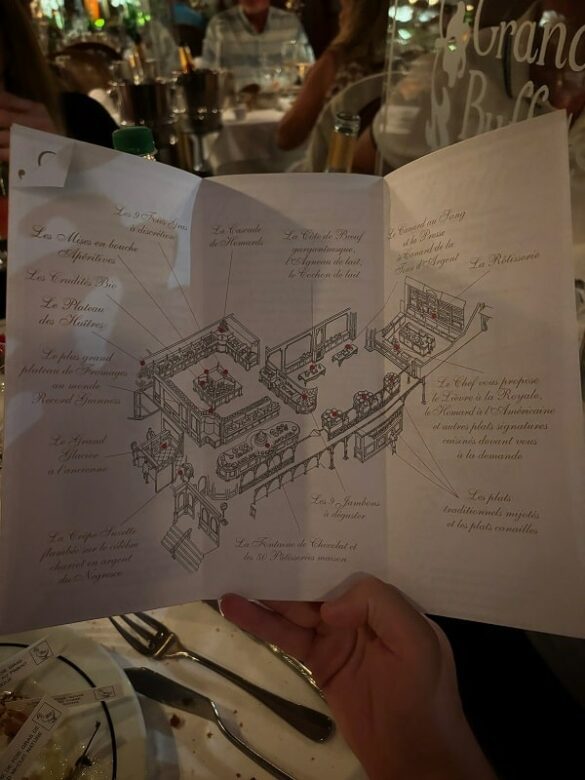 Grand
Buff
Les 9 Foies Gras
à discrétion
Les Mises en bouche
Apéritives
Les Crudités Bio
Le Plateau
des Huîtres
Le plus grand
plateau de Fromages
au monde
Record Guinness
Le Grand
Glacier
à l'ancienne
La Crêpe Suzette
flambée sur le célèbre
chariot en argent
du Negresco
La Cascade
de Homards
La Côte de Bœuf
gargantuesque,
l'Agneau de lait,
le Cochon de lait
Le Canard au Sang
et la Presse
à Canard de la
Tour d'Argent
La Rôtisserie
Le Chef vous propose
le Lièvre à la Royale,
le Homard à l'Américaine
et autres plats signatures
cuisinés devant vous
à la demande
Les plats
traditionnels mijotés
et les plats canailles
Les 9 Jambons
à déguster
La Fontaine de Chocolat et
les 50 Pâtisseries maison